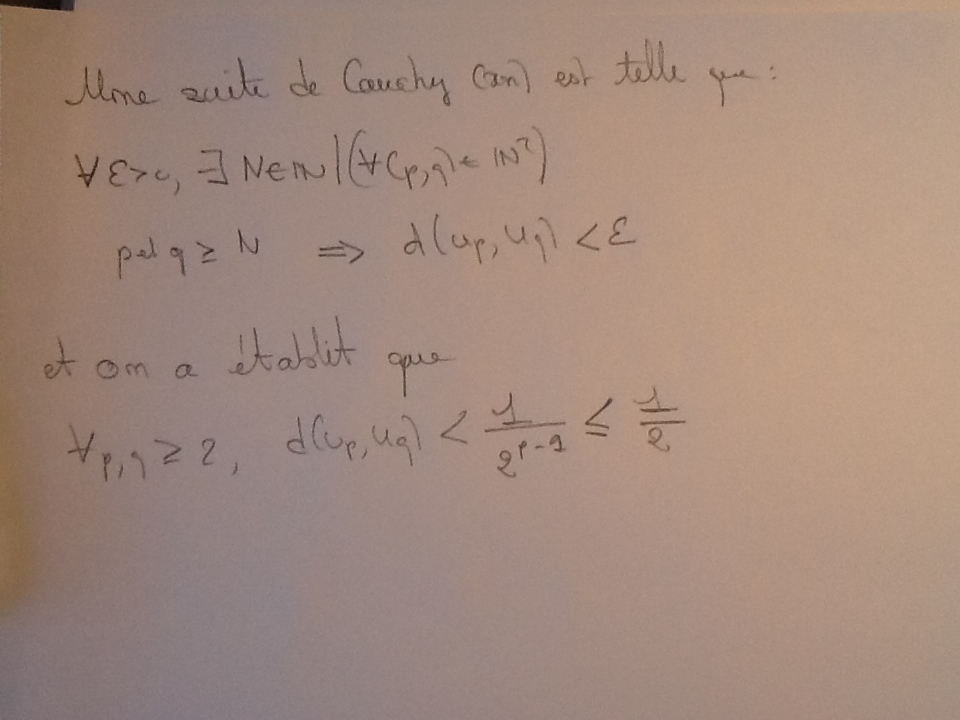 Une suite de Cauchy (un) est telle que :
∀ε>0, ∃ N∈ℕ | (∀(p,q) ∈ ℕ²)
p et q ≥ N ⇒ d(up, uq) < ε
et on a établit que
∀p,q ≥ 2, d(up, uq) < 1/2^(p-1) ≤ 1/2